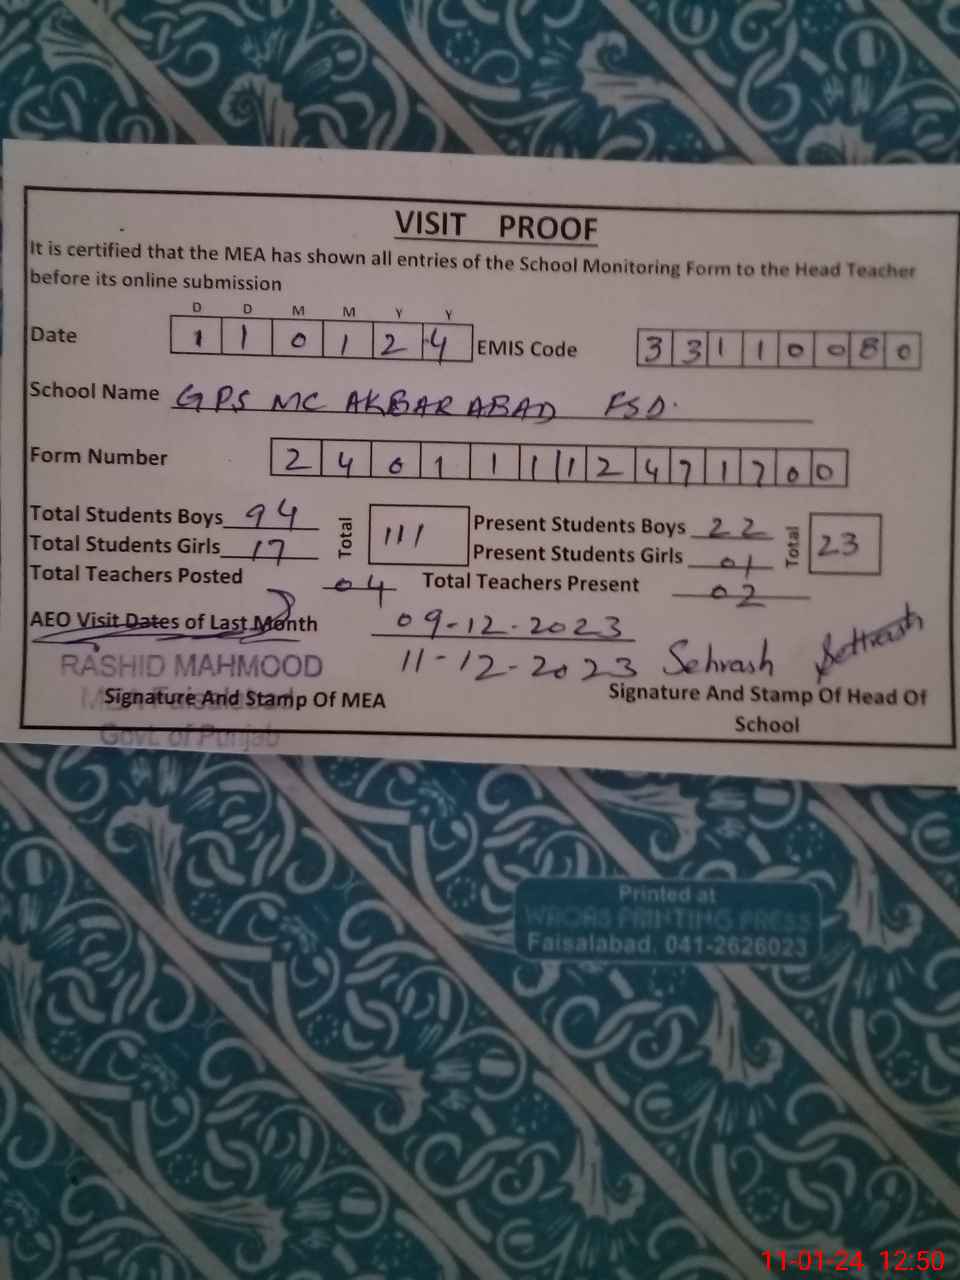 VISIT PROOF
It is certified that the MEA has shown all entries of the School Monitoring Form to the Head Teacher
before its online submission
D D M M Y Y
Date 1 1 0 1 2 4 EMIS Code 3 3 1 1 0 0 8 0
School Name GPS MC AKBAR ABAD FSD.
Form Number 2 4 0 1 1 1 1 2 4 7 1 7 0 0
Total Students Boys 94 Total 111 Present Students Boys 22 Total 23
Total Students Girls 17 Present Students Girls 01
Total Teachers Posted 04 Total Teachers Present 02
AEO Visit Dates of Last Month 09-12-2023
11-12-2023 Sehrash
RASHID MAHMOOD
Signature And Stamp Of MEA Signature And Stamp Of Head Of
School
Govt. of Punjab
Printed at
WAQAS PRINTING PRESS
Faisalabad. 041-2626023
11-01-24 12:50